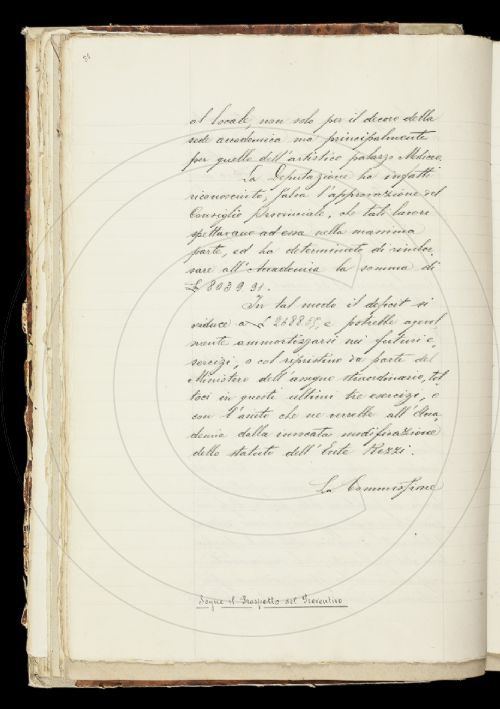 al locale, non solo per il decoro della
sede accademica ma principalmente
per quello dell'artistico palazzo Mediceo.
La Deputazione ha infatti
riconosciuto, salva l'approvazione del
Consiglio Provinciale, che tali lavori
spettavano ad essa nella massima
parte, ed ha determinato di rimbor-
sare all'Accademia la somma di
£ 8039.91.
In tal modo il deficit si
riduce a £ 2688.55, e potrebbe agevol
mente ammortizzarsi nei futuri e-
sercizi, o col ripristino da parte del
Ministero dell'assegno straordinario, tol
toci in questi ultimi tre esercizi, o
con l'aiuto che ne verrebbe all'Acca
demia dalla invocata modificazione
dello statuto dell'Ente Rezzi.
La Commissione
Segue il Prospetto del Preventivo